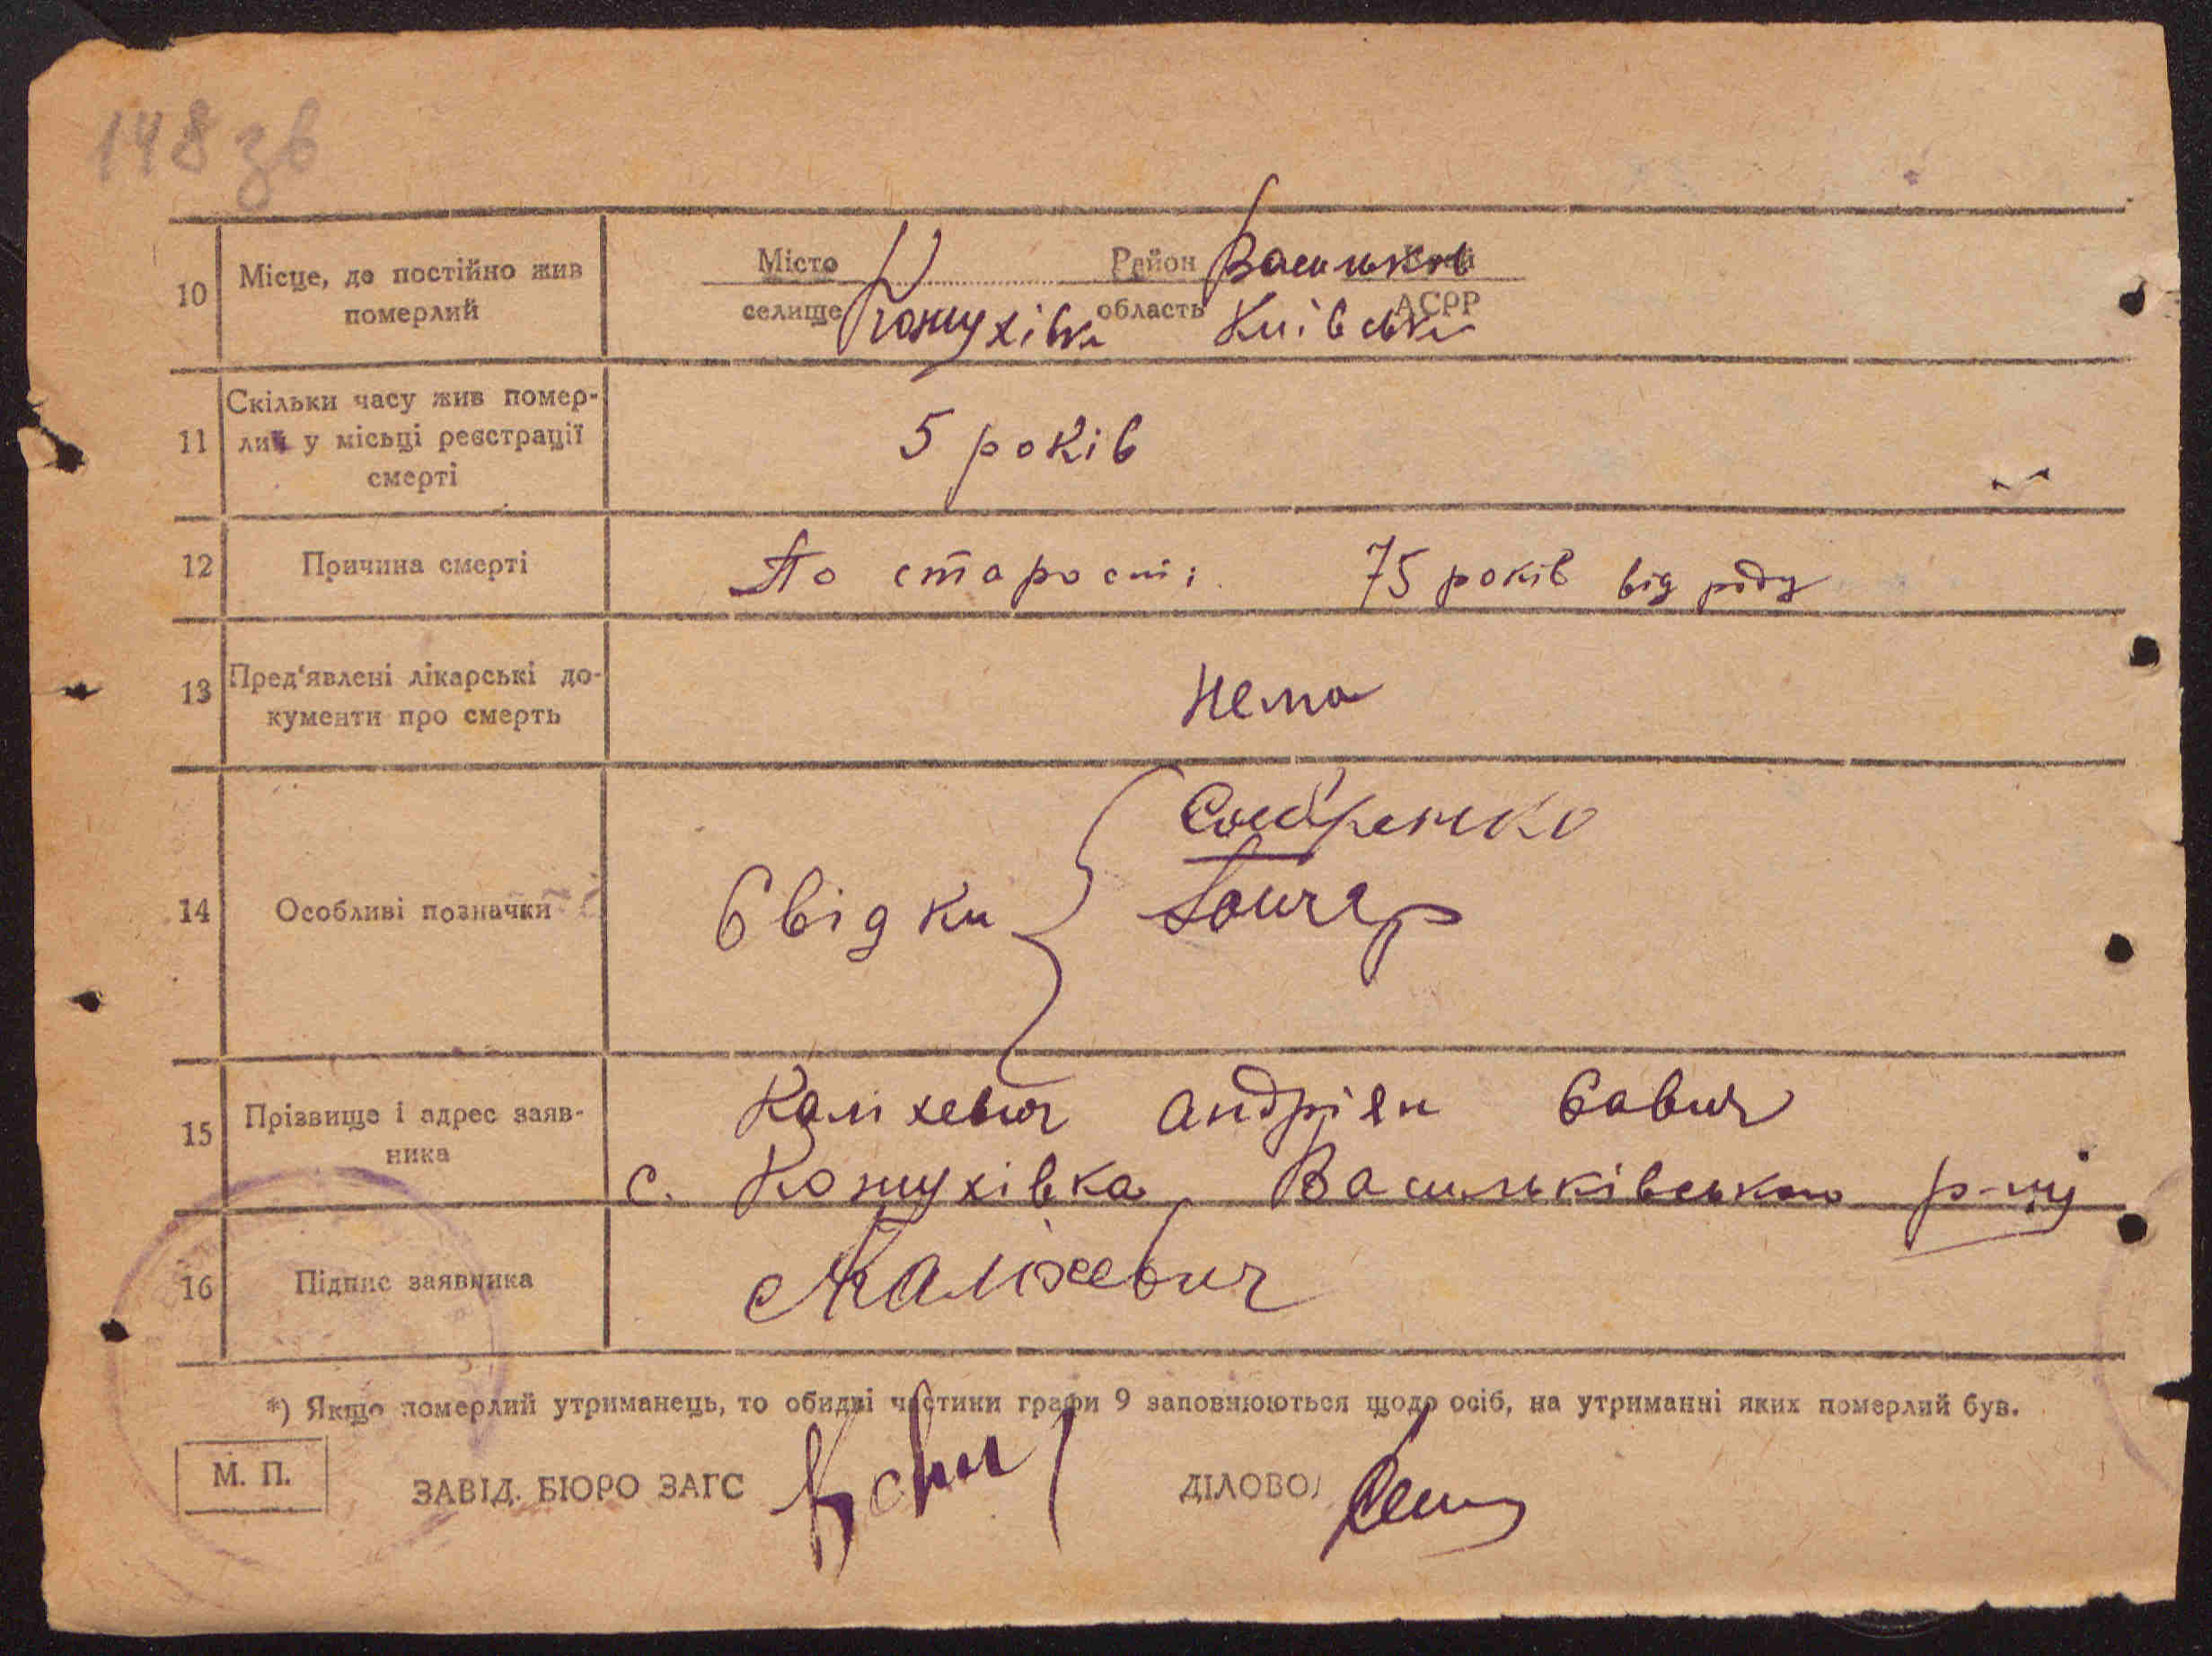 148 зв
10 Місце, де постійно жив померлий
Місто селище Кожухівка Район Васильків область Київська АСРР
11 Скільки часу жив помер-
лий у місьці реєстрації
смерті
5 років
12 Причина смерті
По старості 75 років від роду
13 Пред'явлені лікарські до-
кументи про смерть
Нема
14 Особливі позначки
Свідки
Гончар
15 Прізвище і адрес заяв-
ника
Каліхевич Андріян Савич
с. Кожухівка Васильківського р-ну
16 Підпис заявника
Каліхевич
*) Якщо померлий утриманець, то обидві частини графи 9 заповнюються щодо осіб, на утриманні яких померлий був.
М. П.
ЗАВІД. БЮРО ЗАГС
ДІЛОВОД